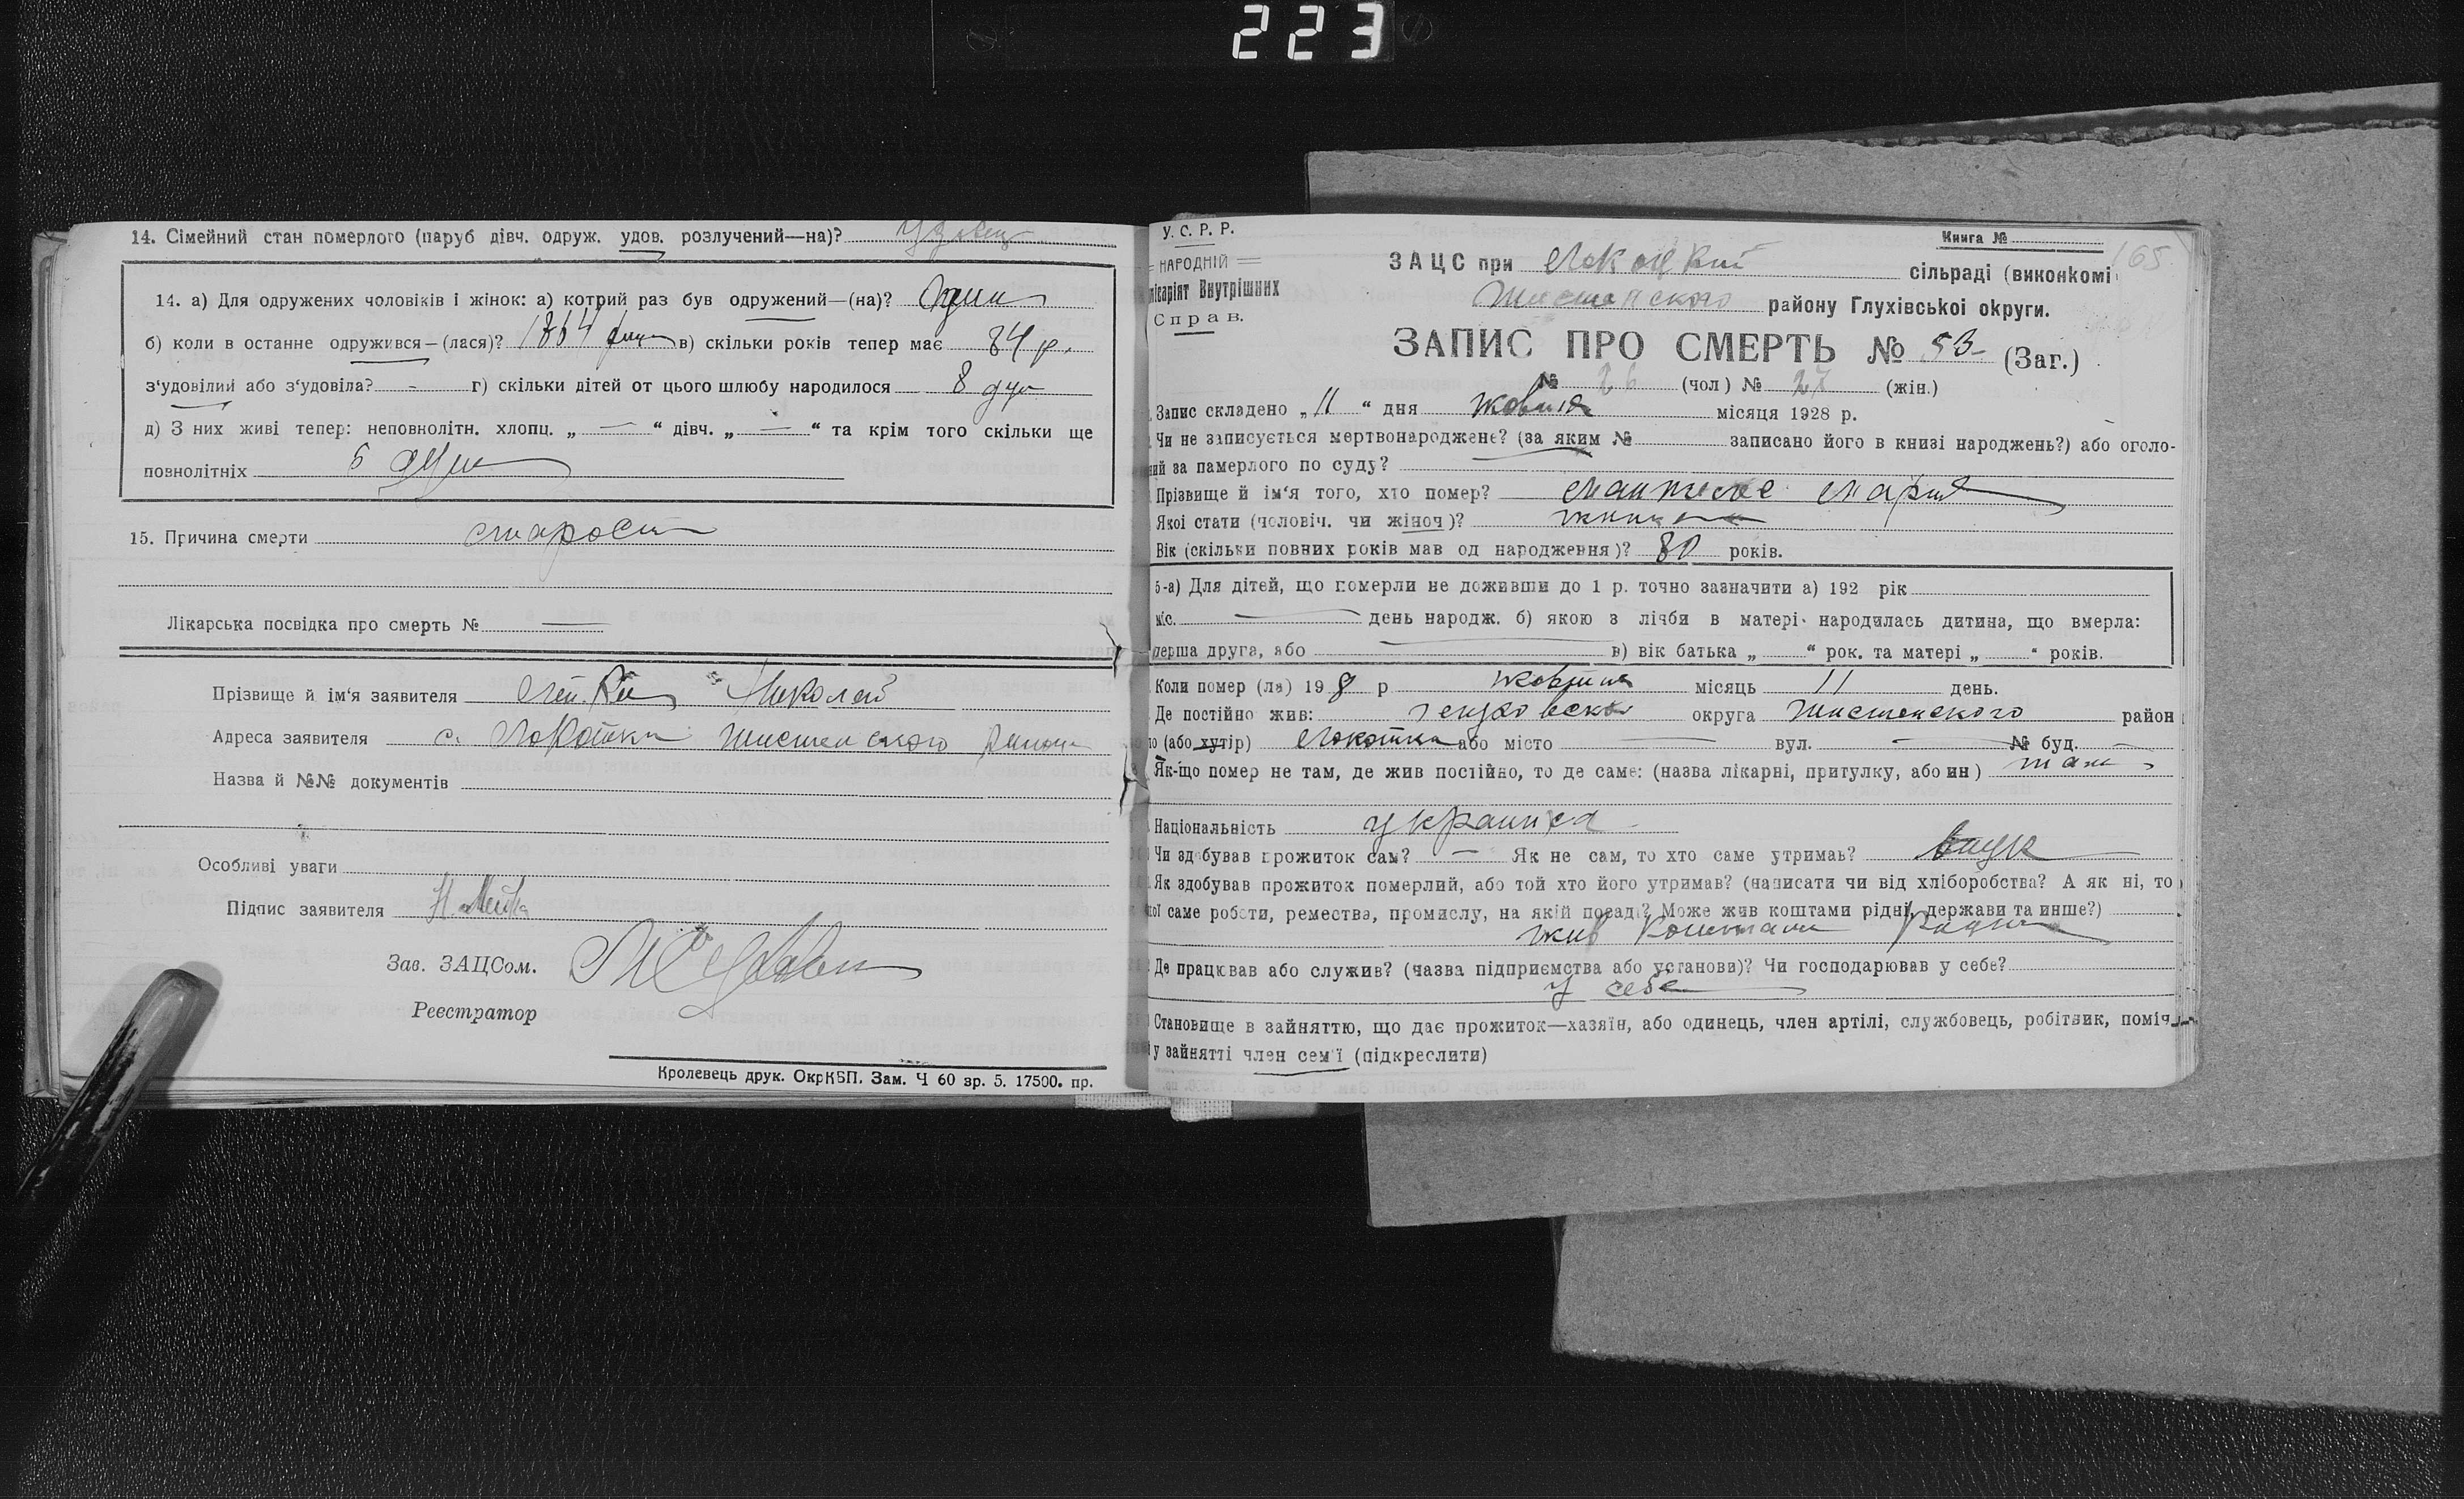 223
14. Сімейний стан померлого (паруб дівч. одруж. удов. розлучений—на)? Удовец
14. а) Для одружених чоловіків і жінок: а) котрий раз був одружений—(на)?
б) коли в останне одружився—(лася)? 1864 в) скільки років тепер має 84 р.
з'удовілий або з'удовіла? - г) скільки дітей от цього шлюбу народилося 8 душ
д) З них живі тепер: неповнолітн. хлопц. „ — “ дівч. „ — “ та крім того скільки ще
повнолітніх 5 душ
15. Причина смерти старость
Лікарська посвідка про смерть № —
Прізвище й ім'я заявителя Николай
Адреса заявителя с. Локотки района
Назва й №№ документів
Особливі уваги
Підпис заявителя Н.
Зав. ЗАЦСом.
Реестратор
Кролевець друк. ОкрКБП. Зам. Ч 60 зр. 5. 17500. пр.
У. С. Р. Р.
НАРОДНІЙ
місаріят Внутрішних
Справ.
Книга №
165
ЗАЦС при сільраді (виконкомі
району Глухівської округи.
ЗАПИС ПРО СМЕРТЬ № 53 (Заг.)
№ 26 (чол) № 27 (жін.)
Запис складено „ 11 “ дня жовтня місяця 1928 р.
Чи не записується мертвонароджене? (за яким № записано його в книзі народжень?) або оголо-
ний за памерлого по суду?
Прізвище й ім'я того, хто помер? Мария
Якої стати (чоловіч. чи жіноч)?
Вік (скільки повних років мав од народження)? 80 років.
5-а) Для дітей, що померли не доживши до 1 р. точно зазначити а) 192 рік
міс. — день народж. б) якою з лічби в матері народилась дитина, що вмерла:
перша друга, або — в) вік батька „ “ рок. та матері „ “ років.
Коли помер (ла) 19 8 р жовтня місяць 11 день.
Де постійно жив: округа район
(або хутір) Локотки або місто — вул. — № буд. —
Як-що помер не там, де жив постійно, то де саме: (назва лікарні, притулку, або ин) там
Національність
Чи здобував прожиток сам? — Як не сам, то хто саме утримав? внук
Як здобував прожиток померлий, або той хто його утримав? (написати чи від хліборобства? А як ні, то
саме роботи, ремества, промислу, на якій посаді? Може жив коштами рідні, держави та инше?)
жив коштами
Де працював або служив? (назва підприємства або установи)? Чи господарював у себе?
у себе
Становище в зайняттю, що дає прожиток—хазяїн, або одинець, член артілі, службовець, робітник, поміч
у зайнятті член сем'ї (підкреслити)